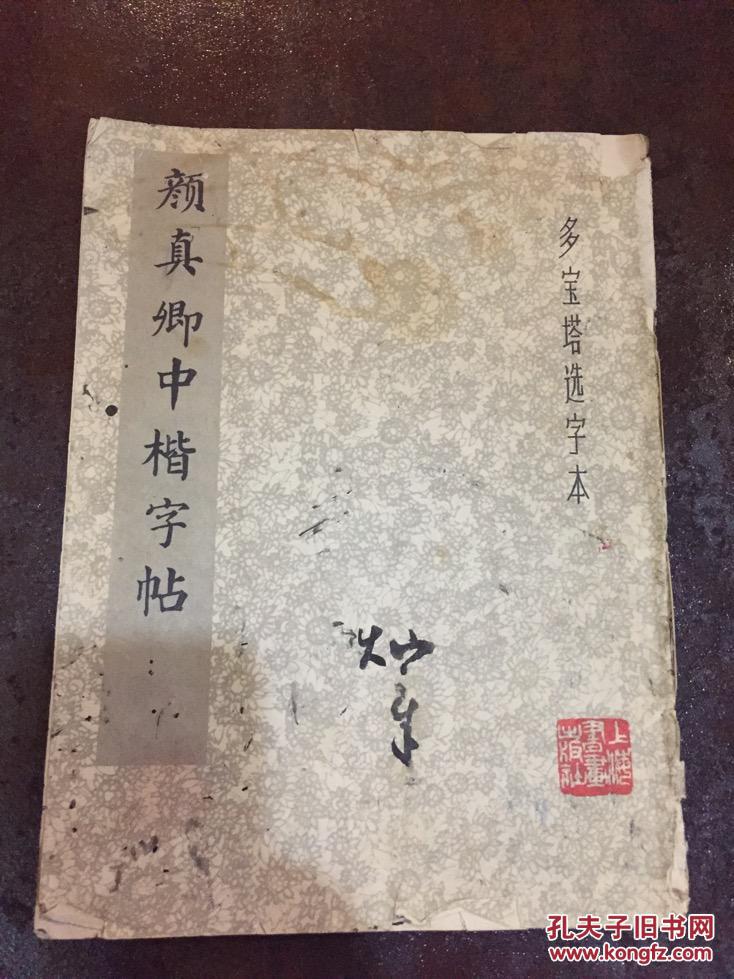 多宝塔选字本
颜真卿中楷字帖
灿
上海
書畫
出版社
孔夫子旧书网
www.kongfz.com